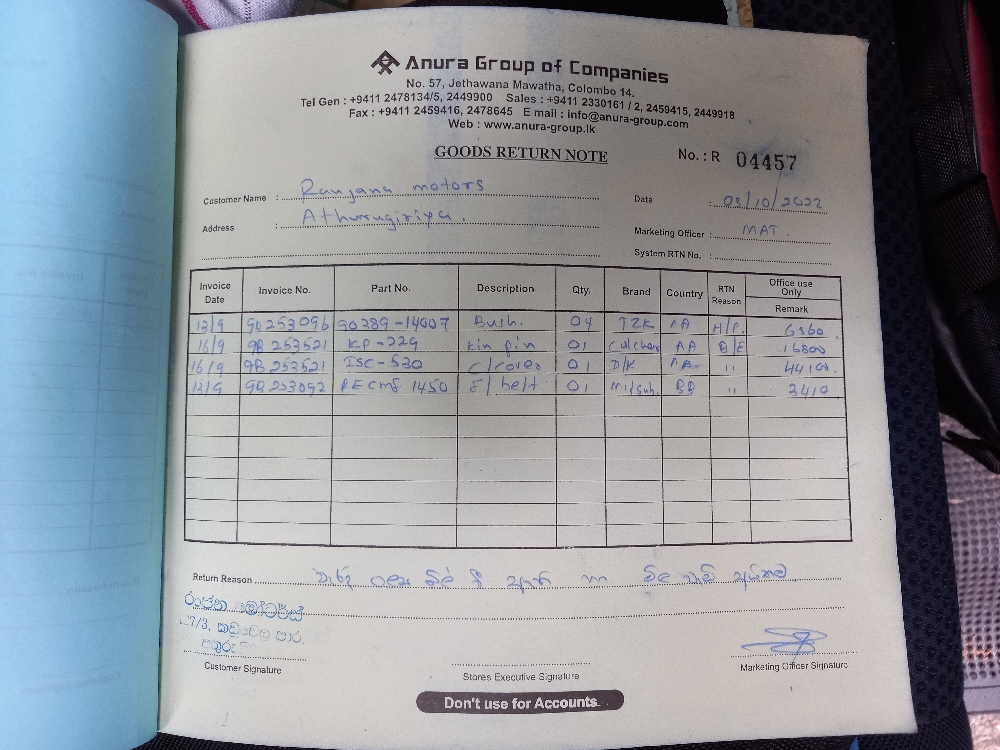 Anura Group of Companies
No. 57, Jethawana Mawatha, Colombo 14.
Tel Gen : +9411 2478134/5, 2449900 Sales : +9411 2330161 / 2, 2459415, 2449918
Fax : +9411 2459416, 2478645 E mail : info@anura-group.com
Web : www.anura-group.lk
GOODS RETURN NOTE
No. : R 04457
Customer Name : Ranjana motors
Date : 08/10/2022
Address : Athurugiriya.
Marketing Officer : MAT.
System RTN No. :
Invoice Date Invoice No. Part No. Description Qty. Brand Country RTN Reason Office use Only Remark
13/9 9B253096 90389-14007 Bush. 04 AA H/P. 6360
16/9 9B 253521 KP-229 Kin pin 01 AA B/E 16800
16/9 9B 253521 ISC-530 C/cover 01 D/K AA 〃 44100.
13/9 9B 253092 1450 F/ belt 01 BB 〃 3410
Return Reason
රංජන මෝටර්ස්
7/3, කඩුවෙල පාර.
Customer Signature
Stores Executive Signature
Marketing Officer Signature
Don't use for Accounts